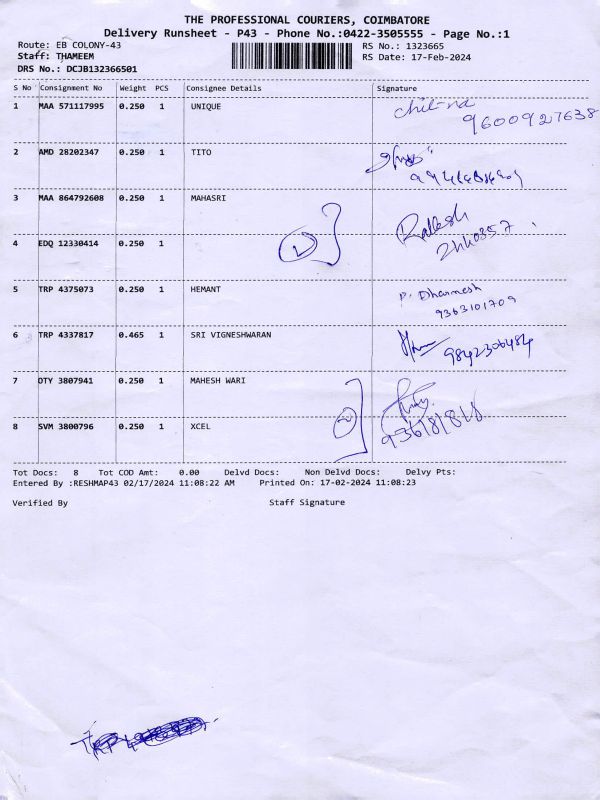 THE PROFESSIONAL COURIERS, COIMBATORE
Delivery Runsheet - P43 - Phone No.:0422-3505555 - Page No.:1
Route: EB COLONY-43 RS No.: 1323665
Staff: THAMEEM RS Date: 17-Feb-2024
DRS No.: DCJB132366501
S No Consignment No Weight PCS Consignee Details Signature
1 MAA 571117995 0.250 1 UNIQUE
9600927638
2 AMD 28202347 0.250 1 TITO
3 MAA 864792608 0.250 1 MAHASRI
4 EDQ 12330414 0.250 1
5 TRP 4375073 0.250 1 HEMANT P. Dharmesh
9363101709
6 TRP 4337817 0.465 1 SRI VIGNESHWARAN 9842306484
7 OTY 3807941 0.250 1 MAHESH WARI
8 SVM 3800796 0.250 1 XCEL
Tot Docs: 8 Tot COD Amt: 0.00 Delvd Docs: Non Delvd Docs: Delvy Pts:
Entered By :RESHMAP43 02/17/2024 11:08:22 AM Printed On: 17-02-2024 11:08:23
Verified By Staff Signature